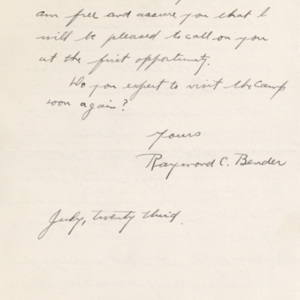 am free and assure you that I
will be pleased to call on you
at the first opportunity.
Do you expect to visit the camp
soon again?
Yours
Raymond C. Bender
July, twenty third.